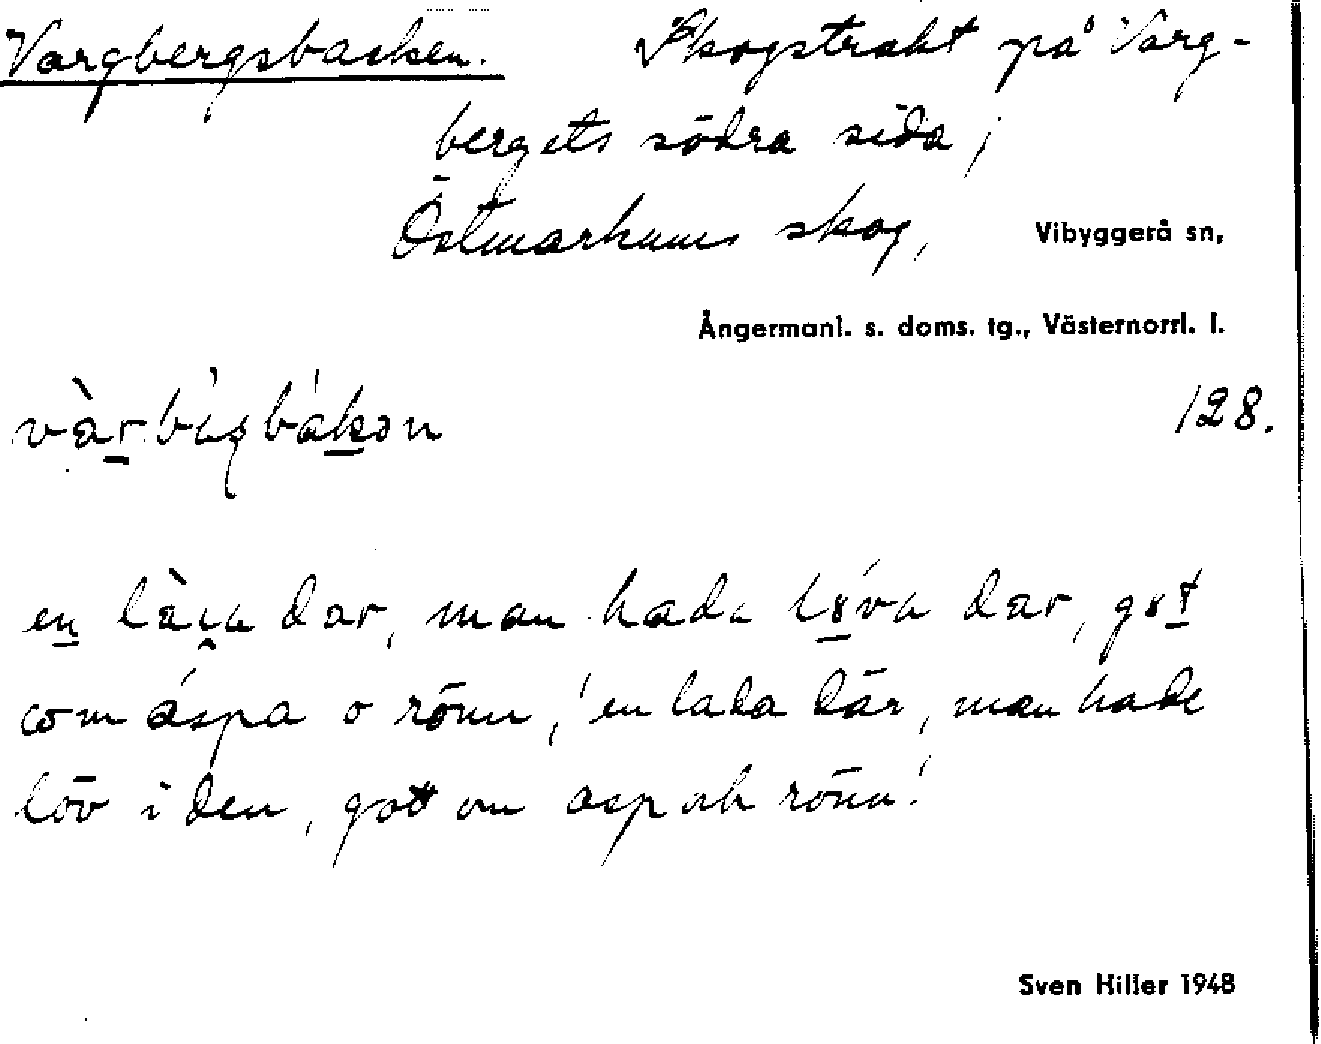 Vargbergsbacken. Skogstrakt på Varg-
bergets södra sida;
Östmarkums skog, Vibyggerå sn,
Ångermanl. s. doms. tg., Västernorrl. l.
128.
en dar, man hada dar, got
om áspa o rönn, 'en lada där, man hade
löv i den, gott om asp och rönn.'
Sven Hiller 1948